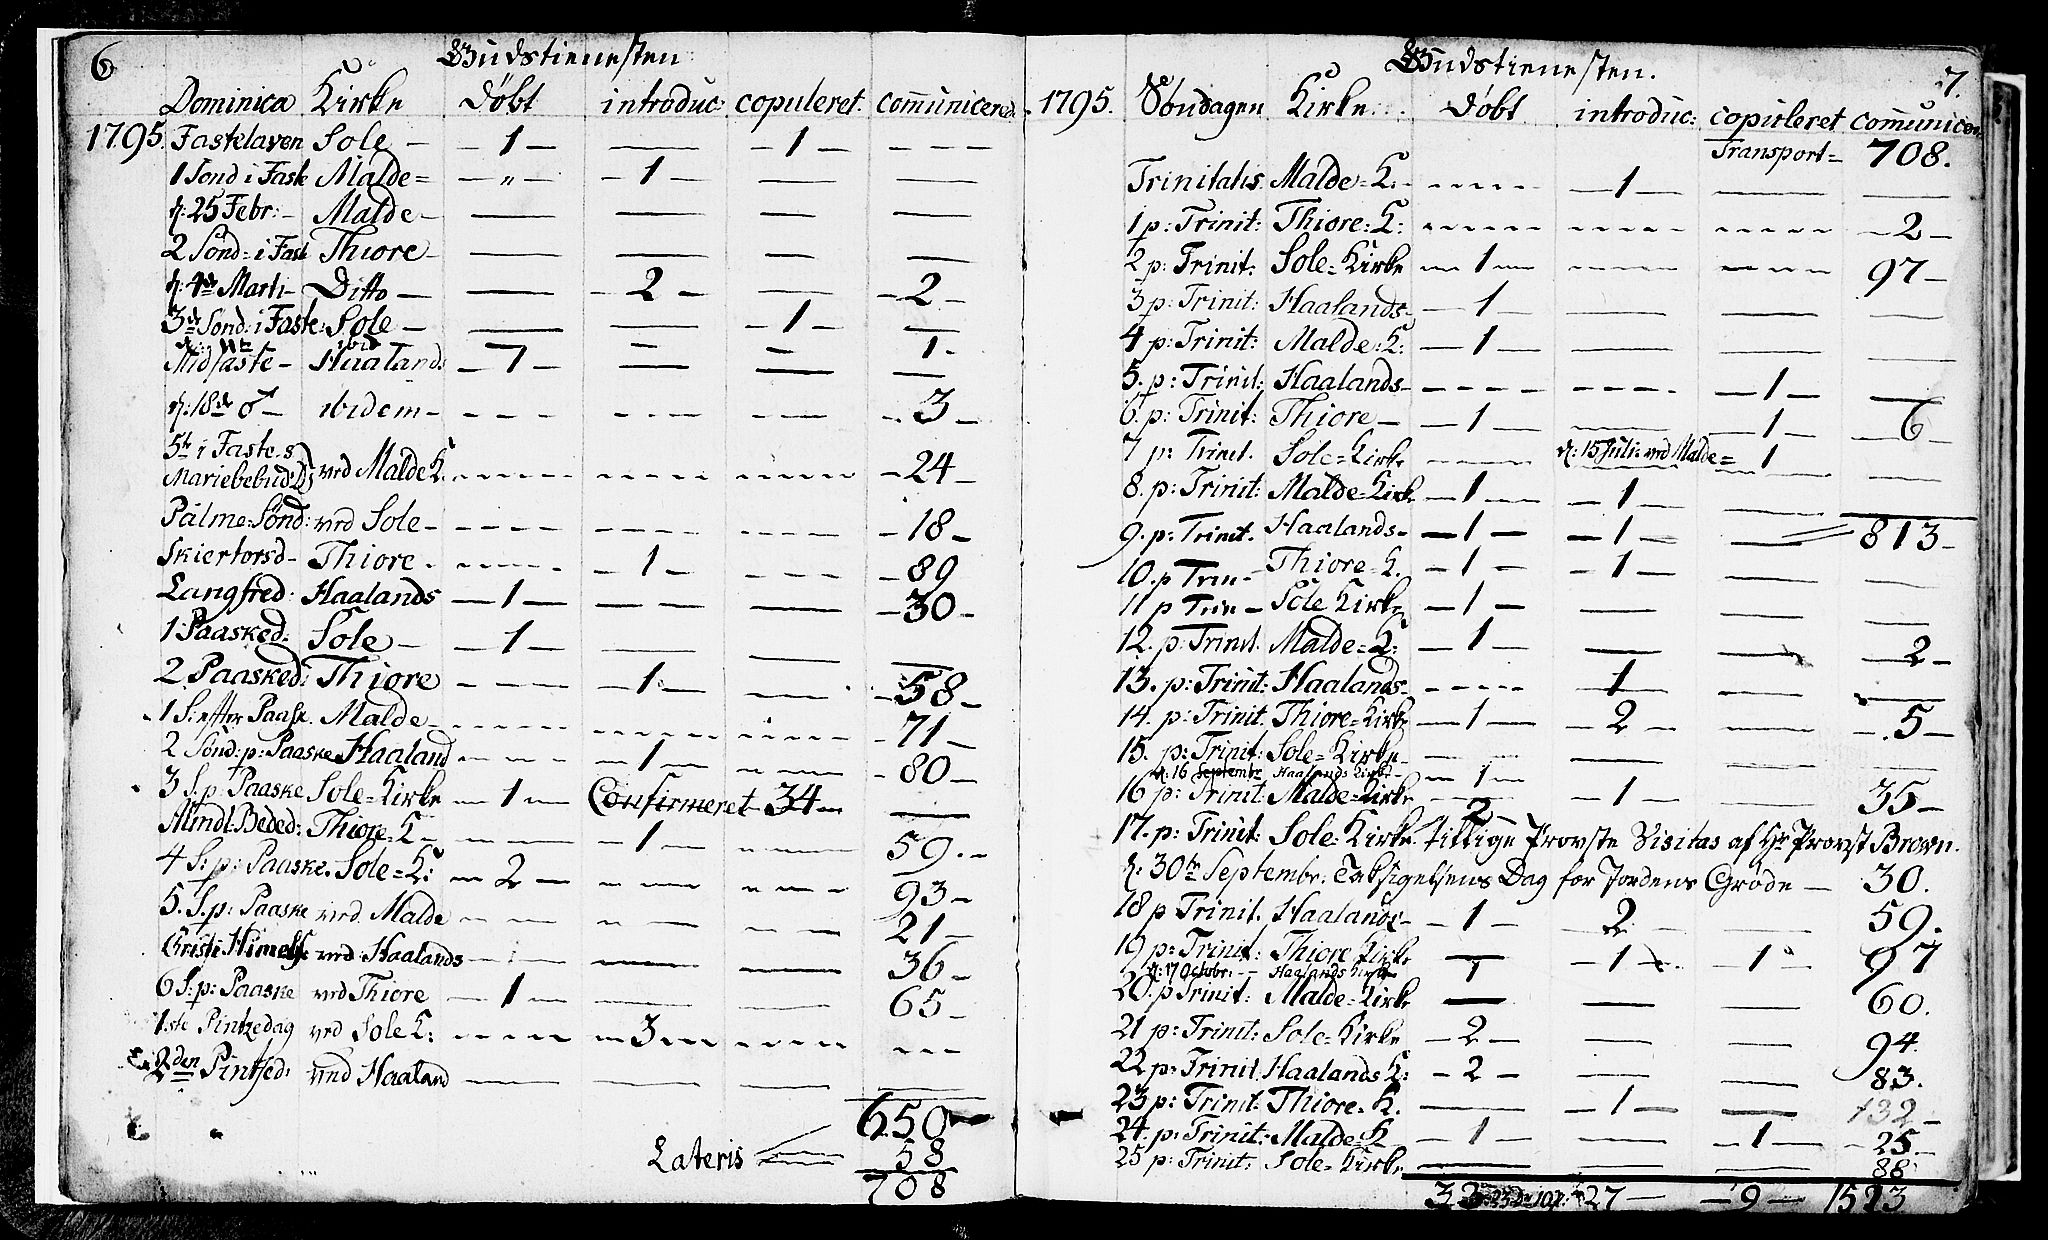 6
Gudstienesten
Dominica Kirke døbt introduc: copuleret. comunicered.
1795. Fastelaven Sole - - 1 - — - 1 - - - -
1 Sønd i Faste Malde= - „ - - 1 - — —
d: 25 Febr: - Malde - — — — —
2 Sønd: i Fast Thiore - — — — —
d: 4de Marti - Ditto - — - 2 - — - 2 -
3de Sønd: i Faste: Sole - — — - 1 - —
d: 11te ibid 1 -
Midfaste - Haalands - 7 - — — —
d: 18de ♂ - ibidem - - - - - - - - - - - 3 -
5te i Faste &
Mariebebud: D: ved Malde K. - - - - - - - - - - 24 -
Palme=Sønd: ved Sole - - - - - - - - - - - 18 -
Skiertorsd - Thiore - - - - - 1 - - - - - 89
Langfred: Haalands - 1 - - - - — - 30 -
1 Paasked: Sole - - 1 - — — —
2 Paasked: Thiore - - - - 1 - — - 58 -
1 S: efter Paask. Malde - - - - - - - - - - - 71 -
2 Sønd: p: Paaske Haaland - - - - 1 - - - - - 80 -
3 S. p: Paaske Sole=Kirke - 1 - Confirmeret 34 - —
Almdl: Beded: Thiore=K - - - - - 1 - - - - 59. -
4 S: p: Paaske. Sole=K: - 2 - - - - - - - 93 -
5. S. p: Paaske ved Malde - - - - - - — 21 -
Christi Himelf: ved Haalands - - - — — 36 -
6 S: p: Paaske ved Thiore - 1 - — — 65 -
1ste Pintzedag ved Sole K: - - - - - 3 - - - - - - - -
2den Pintsed: ved Haaland — — — —
650
Lateris 58
708
7.
Gudstienesten.
1795. Søndagen Kirke døbt introduc: copuleret comunicer
Transport= 708.
Trinitatis. Malde=K: - - - - - 1 - — —
1 p: Trinit: Thiore=K: - - - - - - - - - - - - - 2 -
2 p: Trinit: Sole=Kirke - 1 - - - - - - - - 97 -
3 p: Trinit: Haalands - - 1 - — — —
4 p: Trinit: Malde:K: - 1 - — — —
5. p: Trinit: Haalands - - - - - - - - - - 1 - —
6. p: Trinit: Thiore - - 1 - — - 1 - - 6 -
7 p: Trinit. Sole=Kirke - - - - d: 15 Juli: ved Malde= - 1 - —
8. p: Trinit: Malde=Kirke - 1 - - 1 - — —
9. p: Trinit. Haalands - - 1 - - 1 - — 813 -
10. p Trin - Thiore=K. - 1 - - 1 - — —
11 p Trin - Sole Kirke - 1 - — — —
12. p. Trinit. Malde=K: - 1 - — — - 2 -
13. p: Trinit: Haalands - - - - - 1 - — —
14. p: Trinit. Thiore=Kirke - 1 - - 2 - — - 5 -
15. p: Trinit: Sole=Kirke - - - - — — —
d: 16 Septembr Haalands Kirke - - 1 -
16 p: Trinit: Malde=Kirke - 2 - - 1 - — 35 -
17. p: Trinit: Sole=Kirke. tillige Provste Visitas af Hr Provst Brown.
d: 30te Septembr: Taksigelsens Dag for Jordens Grøde - 30.
18 p Trinit. Haalands - - 1 - 2 - — 59.
19 p: Trinit: Thiore Kirke - - 1 - 1 - 97
d: 17 Octobr: - - Haalands Kirke - 1
20. p Trinit: Malde=Kirke — — — 60.
21 p: Trinit: Sole=Kirke - 2 - — — 94.
22 p: Trinit Haalands K: - 2 - — — 83.
23 p: Trinit: Thiore. K. — - 1 - — 132 -
24. p: Trinit: Malde=K - 1 - — - 1 - - 25 -
25 p: Trinit: Sole=Kirke — — — 88
33 - 27 - - 9 - 1523